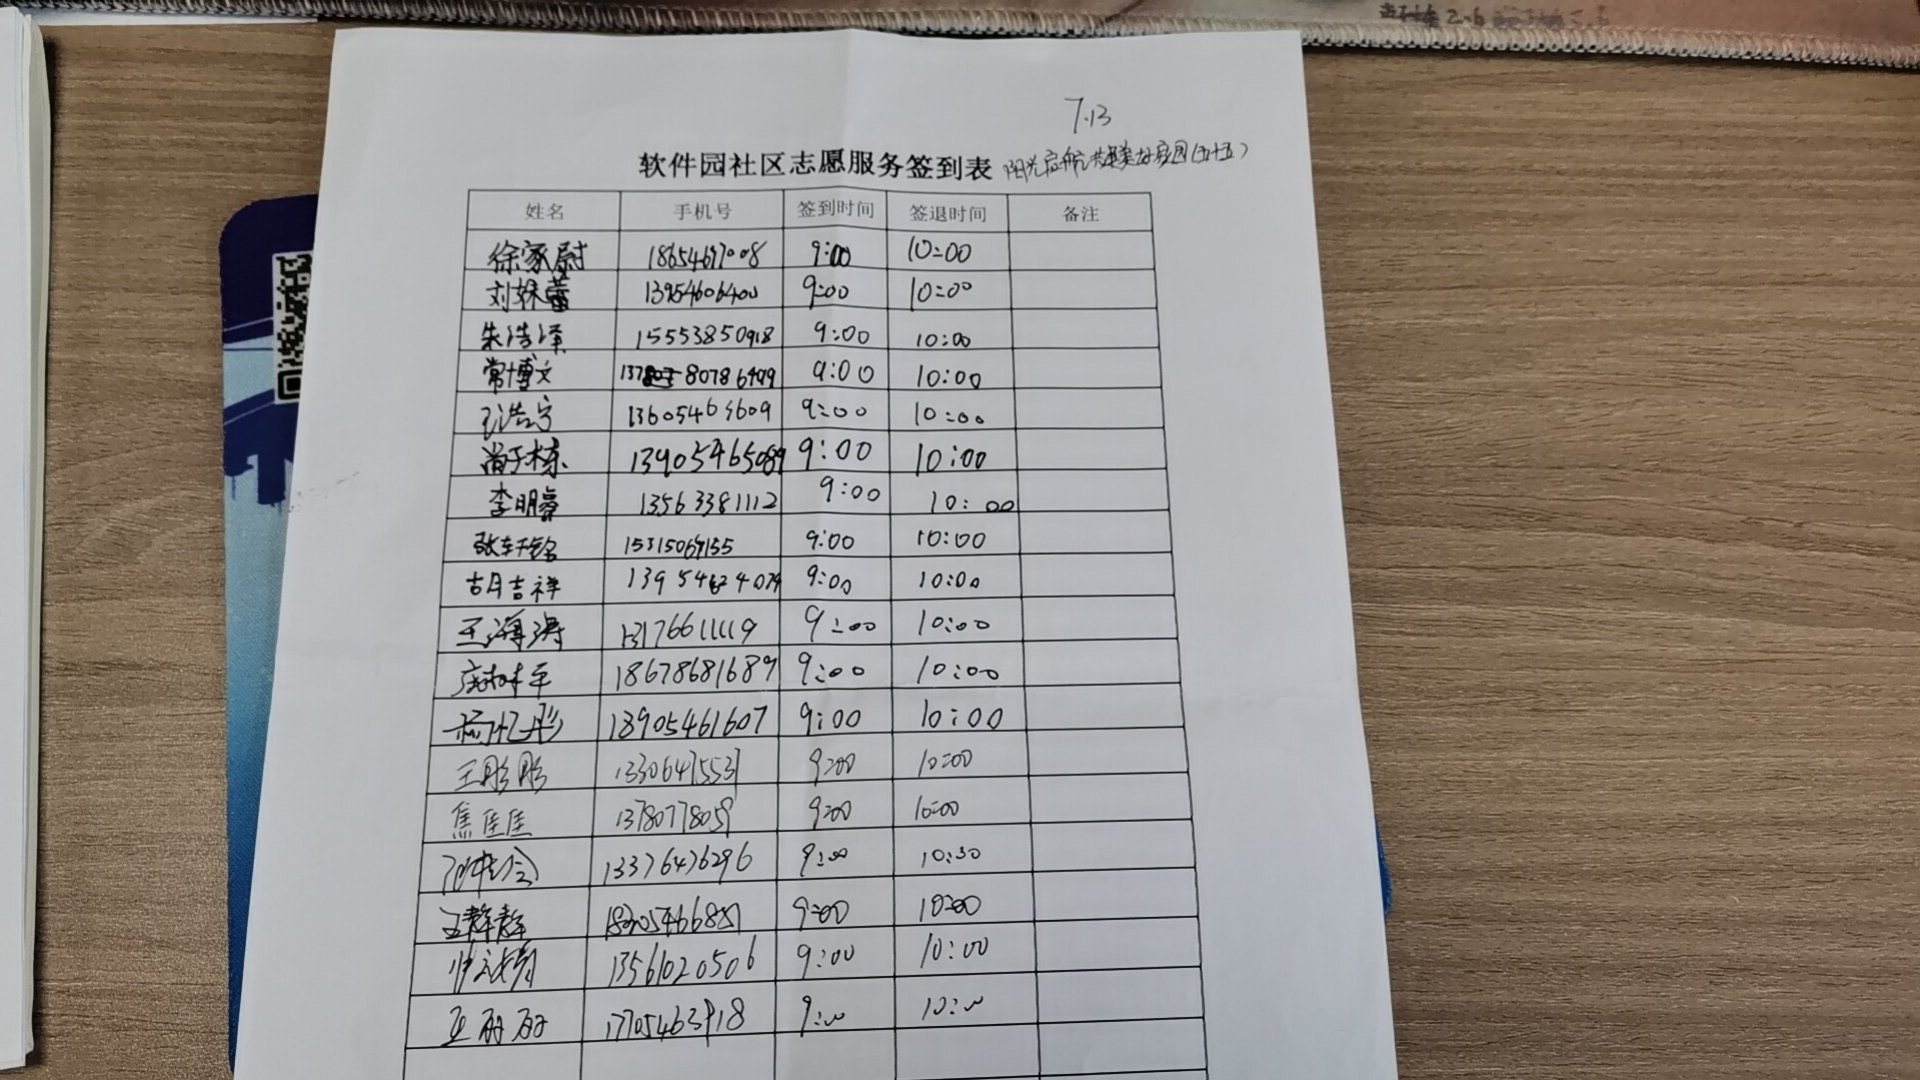 7.13
软件园社区志愿服务签到表 阳光启航
姓名 手机号 签到时间 签退时间 备注
徐家尉 18654697008 9:00 10:00
刘姝蕾 13954606400 9:00 10:00
朱浩泽 15553850918 9:00 10:00
常博文 9:00 10:00
孔浩宁 9:00 10:00
尚于栋 13905465089 9:00 10:00
李明睿 13563381112 9:00 10:00
张轩铭 9:00 10:00
胡吉祥 9:00 10:00
王海涛 13176611119 9:00 10:00
18678681689 9:00 10:00
杨忆彤 13905461607 9:00 10:00
王彤彤 13306475531 9:00 10:00
焦佳佳 13780778059 9:00 10:00
13376476296 9:00 10:30
王静静 9:00 10:00
13561020506 9:00 10:00
王丽丽 17705463918 9:00 10:00